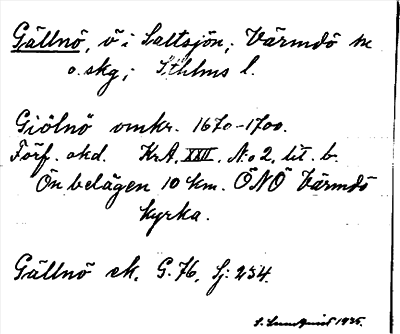 Gällnö, ö i Saltsjön; Värmdö sn
o. skg; Sthlms l.
Giölnö omkr. 1670-1700.
Förf. okd. KrA, XXII, No 2, lit. b.
Ön belägen 10 km. ÖNÖ Värmdö
kyrka.
Gällnö ek. G. 76, Lj: 234.
S. Lundquist 1935.